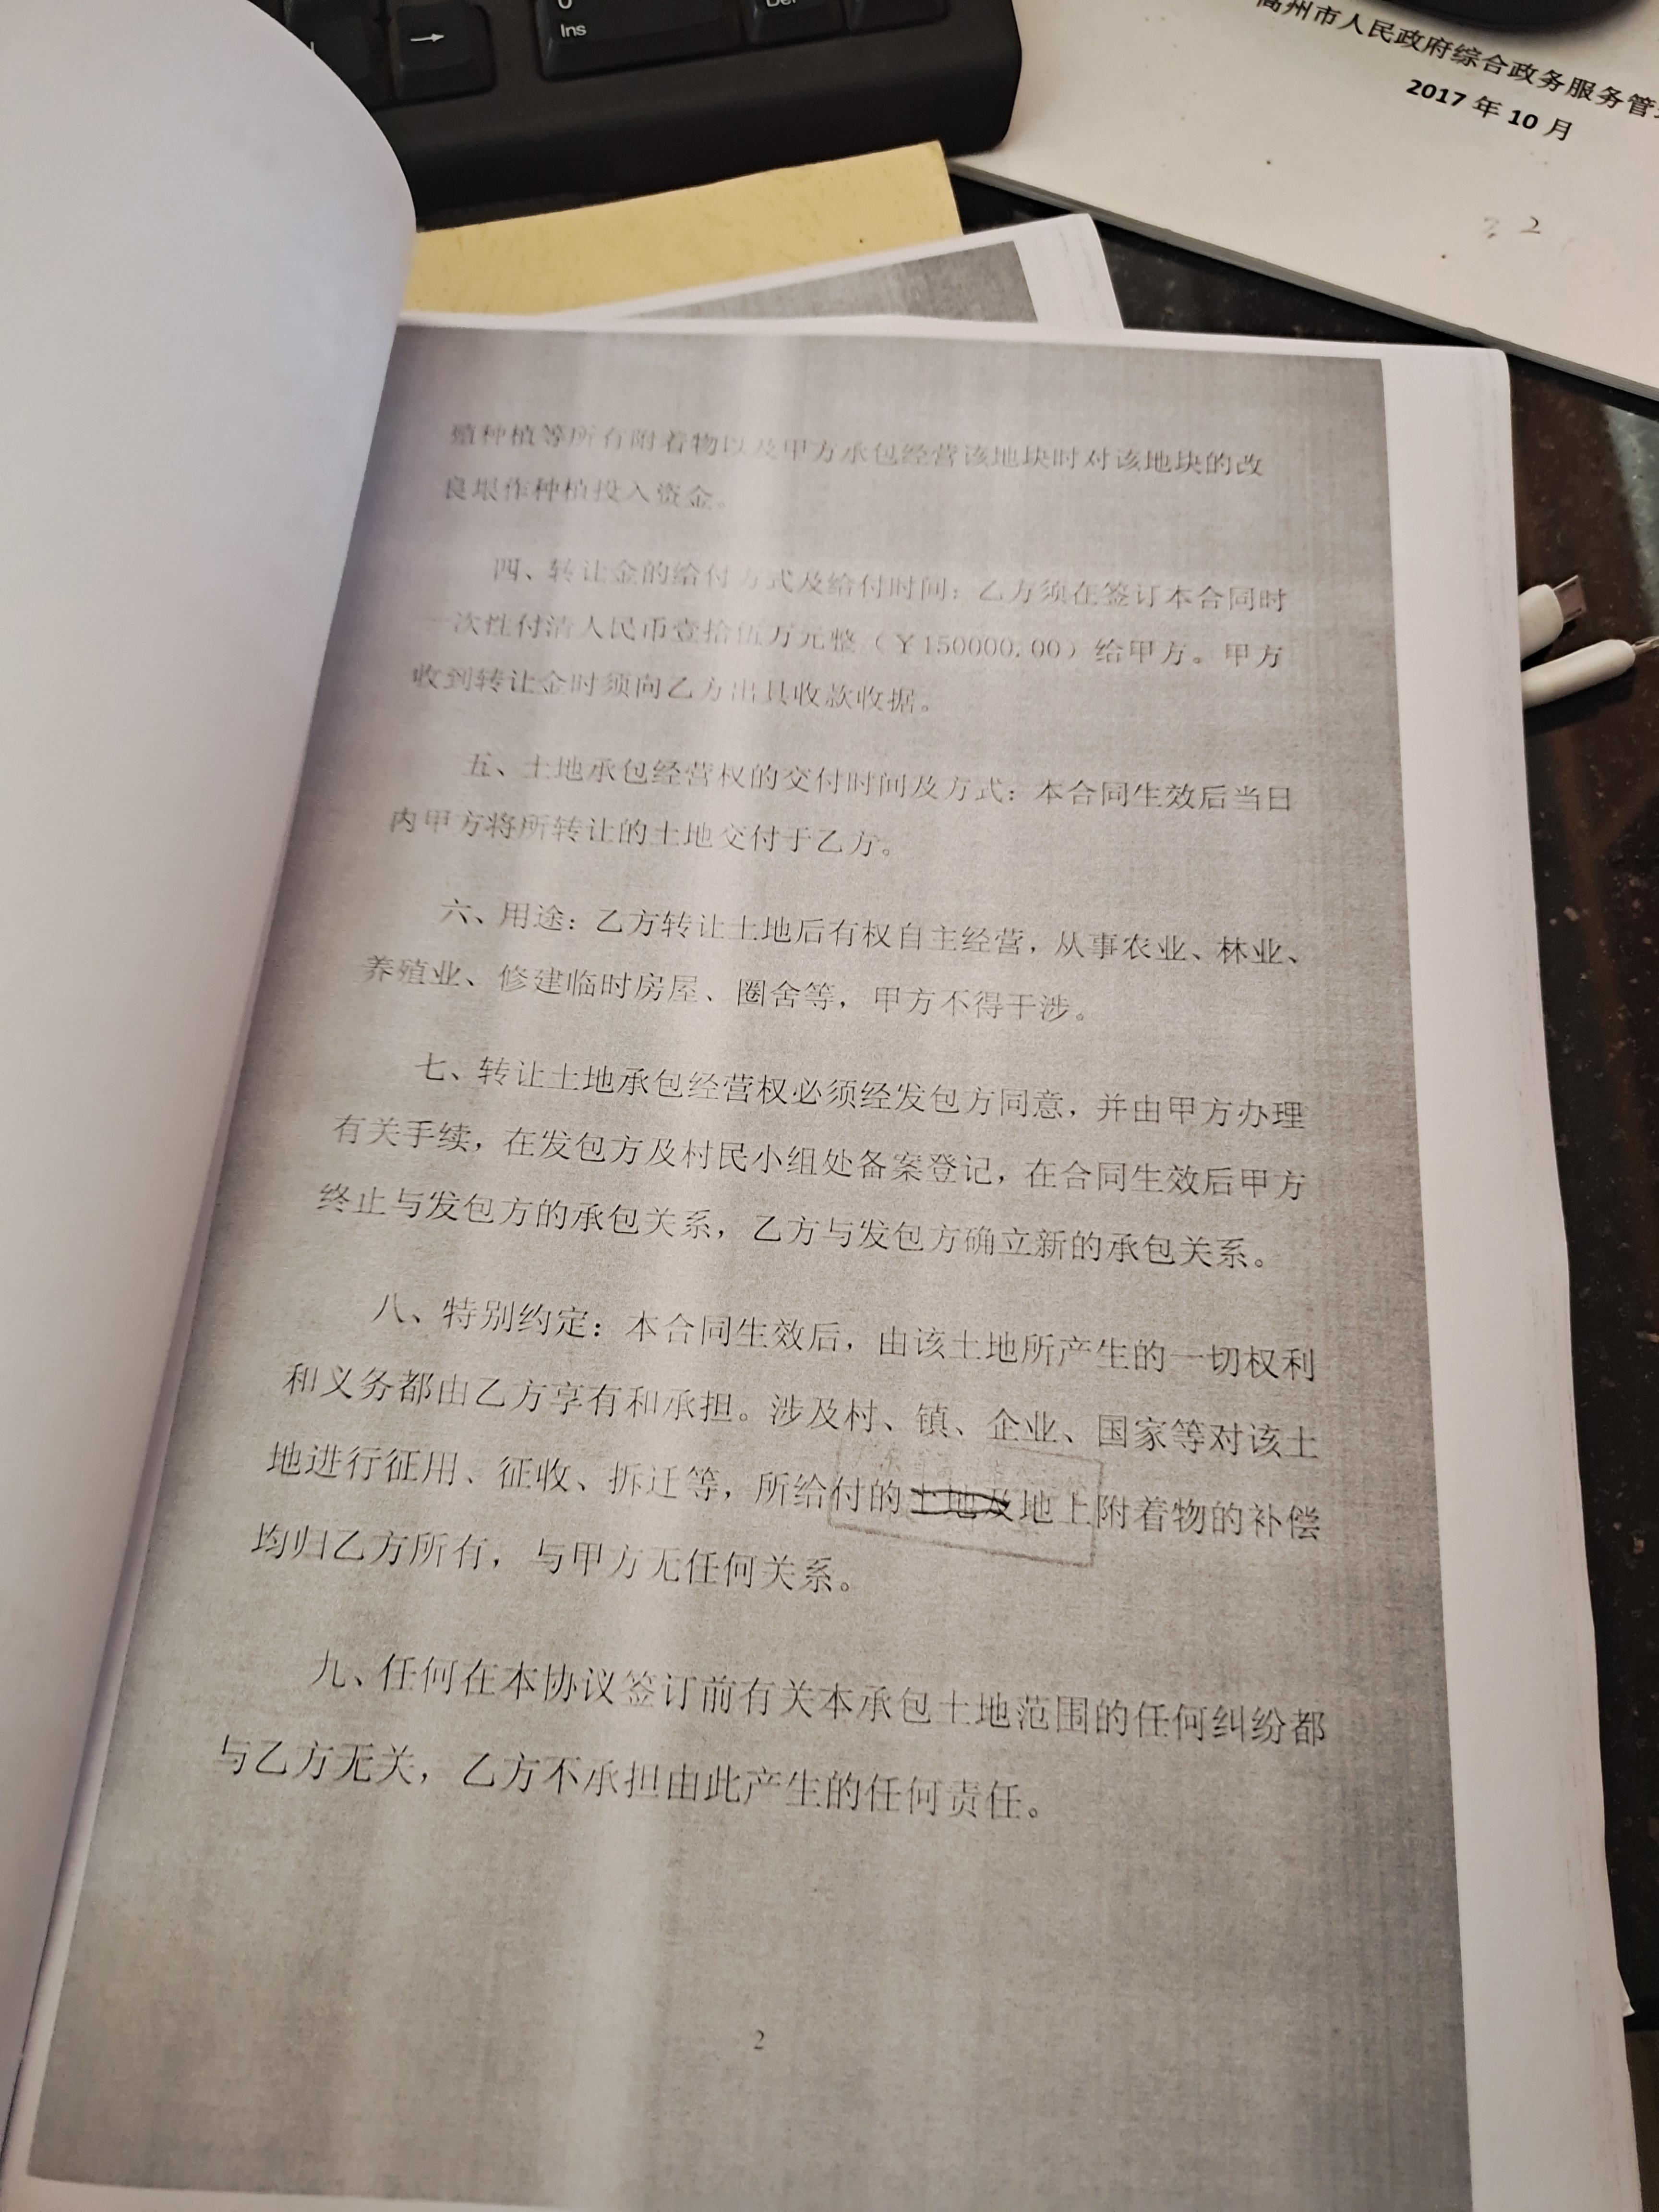 Ins
高州市人民政府综合政务服务管
2017年10月
2
殖种植等所有附着物以及甲方承包经营该地块时对该地块的改
良垠作种植投入资金。
四、转让金的给付方式及给付时间：乙方须在签订本合同时
一次性付清人民币壹拾伍万元整（￥150000.00）给甲方。甲方
收到转让金时须向乙方出具收款收据。
五、土地承包经营权的交付时间及方式：本合同生效后当日
内甲方将所转让的土地交付于乙方。
六、用途：乙方转让土地后有权自主经营，从事农业、林业、
养殖业、修建临时房屋、圈舍等，甲方不得干涉。
七、转让土地承包经营权必须经发包方同意，并由甲方办理
有关手续，在发包方及村民小组处备案登记，在合同生效后甲方
终止与发包方的承包关系，乙方与发包方确立新的承包关系。
八、特别约定：本合同生效后，由该土地所产生的一切权利
和义务都由乙方享有和承担。涉及村、镇、企业、国家等对该土
地进行征用、征收、拆迁等，所给付的土地及地上附着物的补偿
均归乙方所有，与甲方无任何关系。
九、任何在本协议签订前有关本承包土地范围的任何纠纷都
与乙方无关，乙方不承担由此产生的任何责任。
2